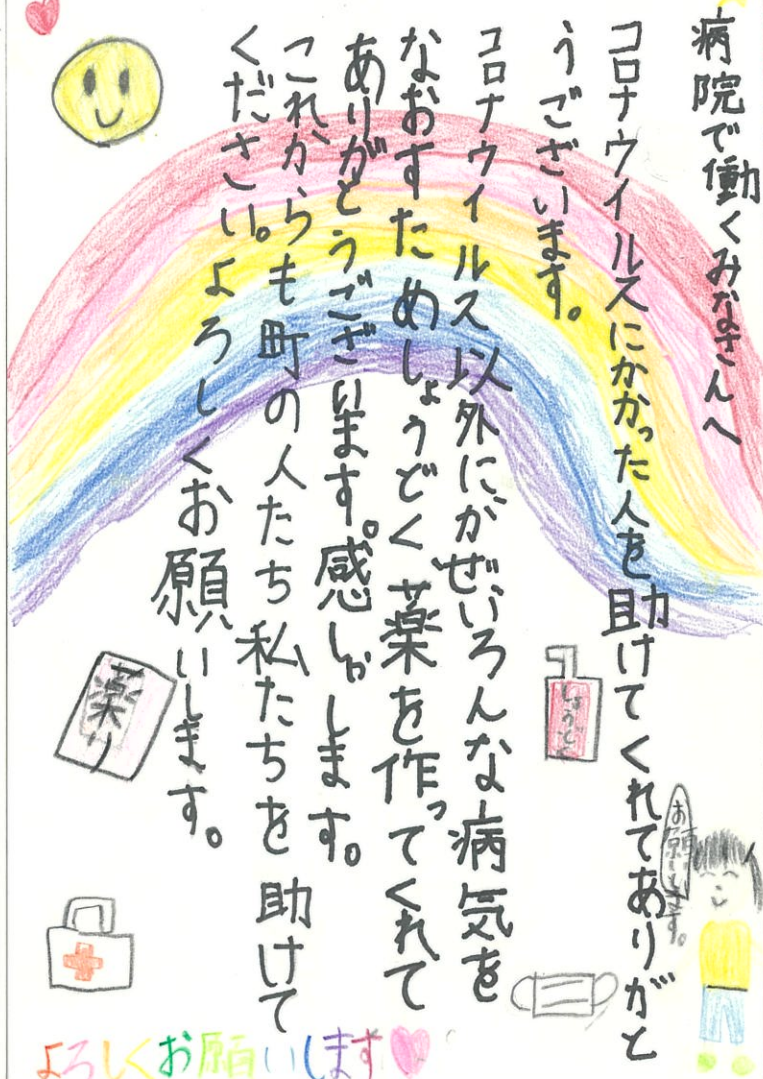 病院で働くみなさんへ
コロナウイルスにかかった人を助けてくれてありがと
うございます。
コロナウイルス以外にかぜいろんな病気を
なおすためしょうどく薬を作ってくれて
ありがとうございます。感しゃします。
これからも町の人たち私たちを助けて
ください。よろしくお願いします。
しょうどく
お願いします。
薬り
よろしくお願いします